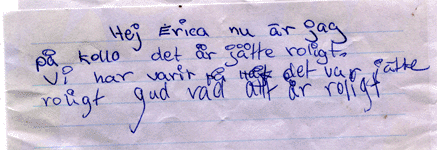 Hej Erica nu är jag
på kollo det är jätte roligt.
Vi har varit på det var jätte
roligt gud vad allt är roligt